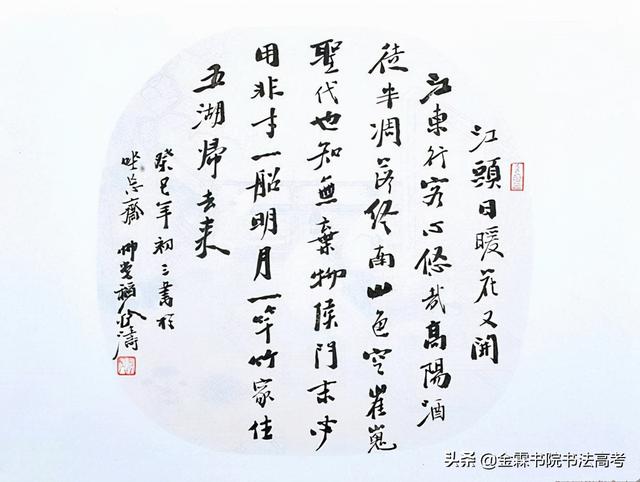 江頭日暖花又開
江東行客心悠哉高陽酒
徒半凋落終南山色空崔嵬
聖代也知無棄物侯門未必
用非才一船明月一竿竹家住
五湖歸去来
癸巳年初三書於
坐忘齋 濤
头条 @金霖书院书法高考